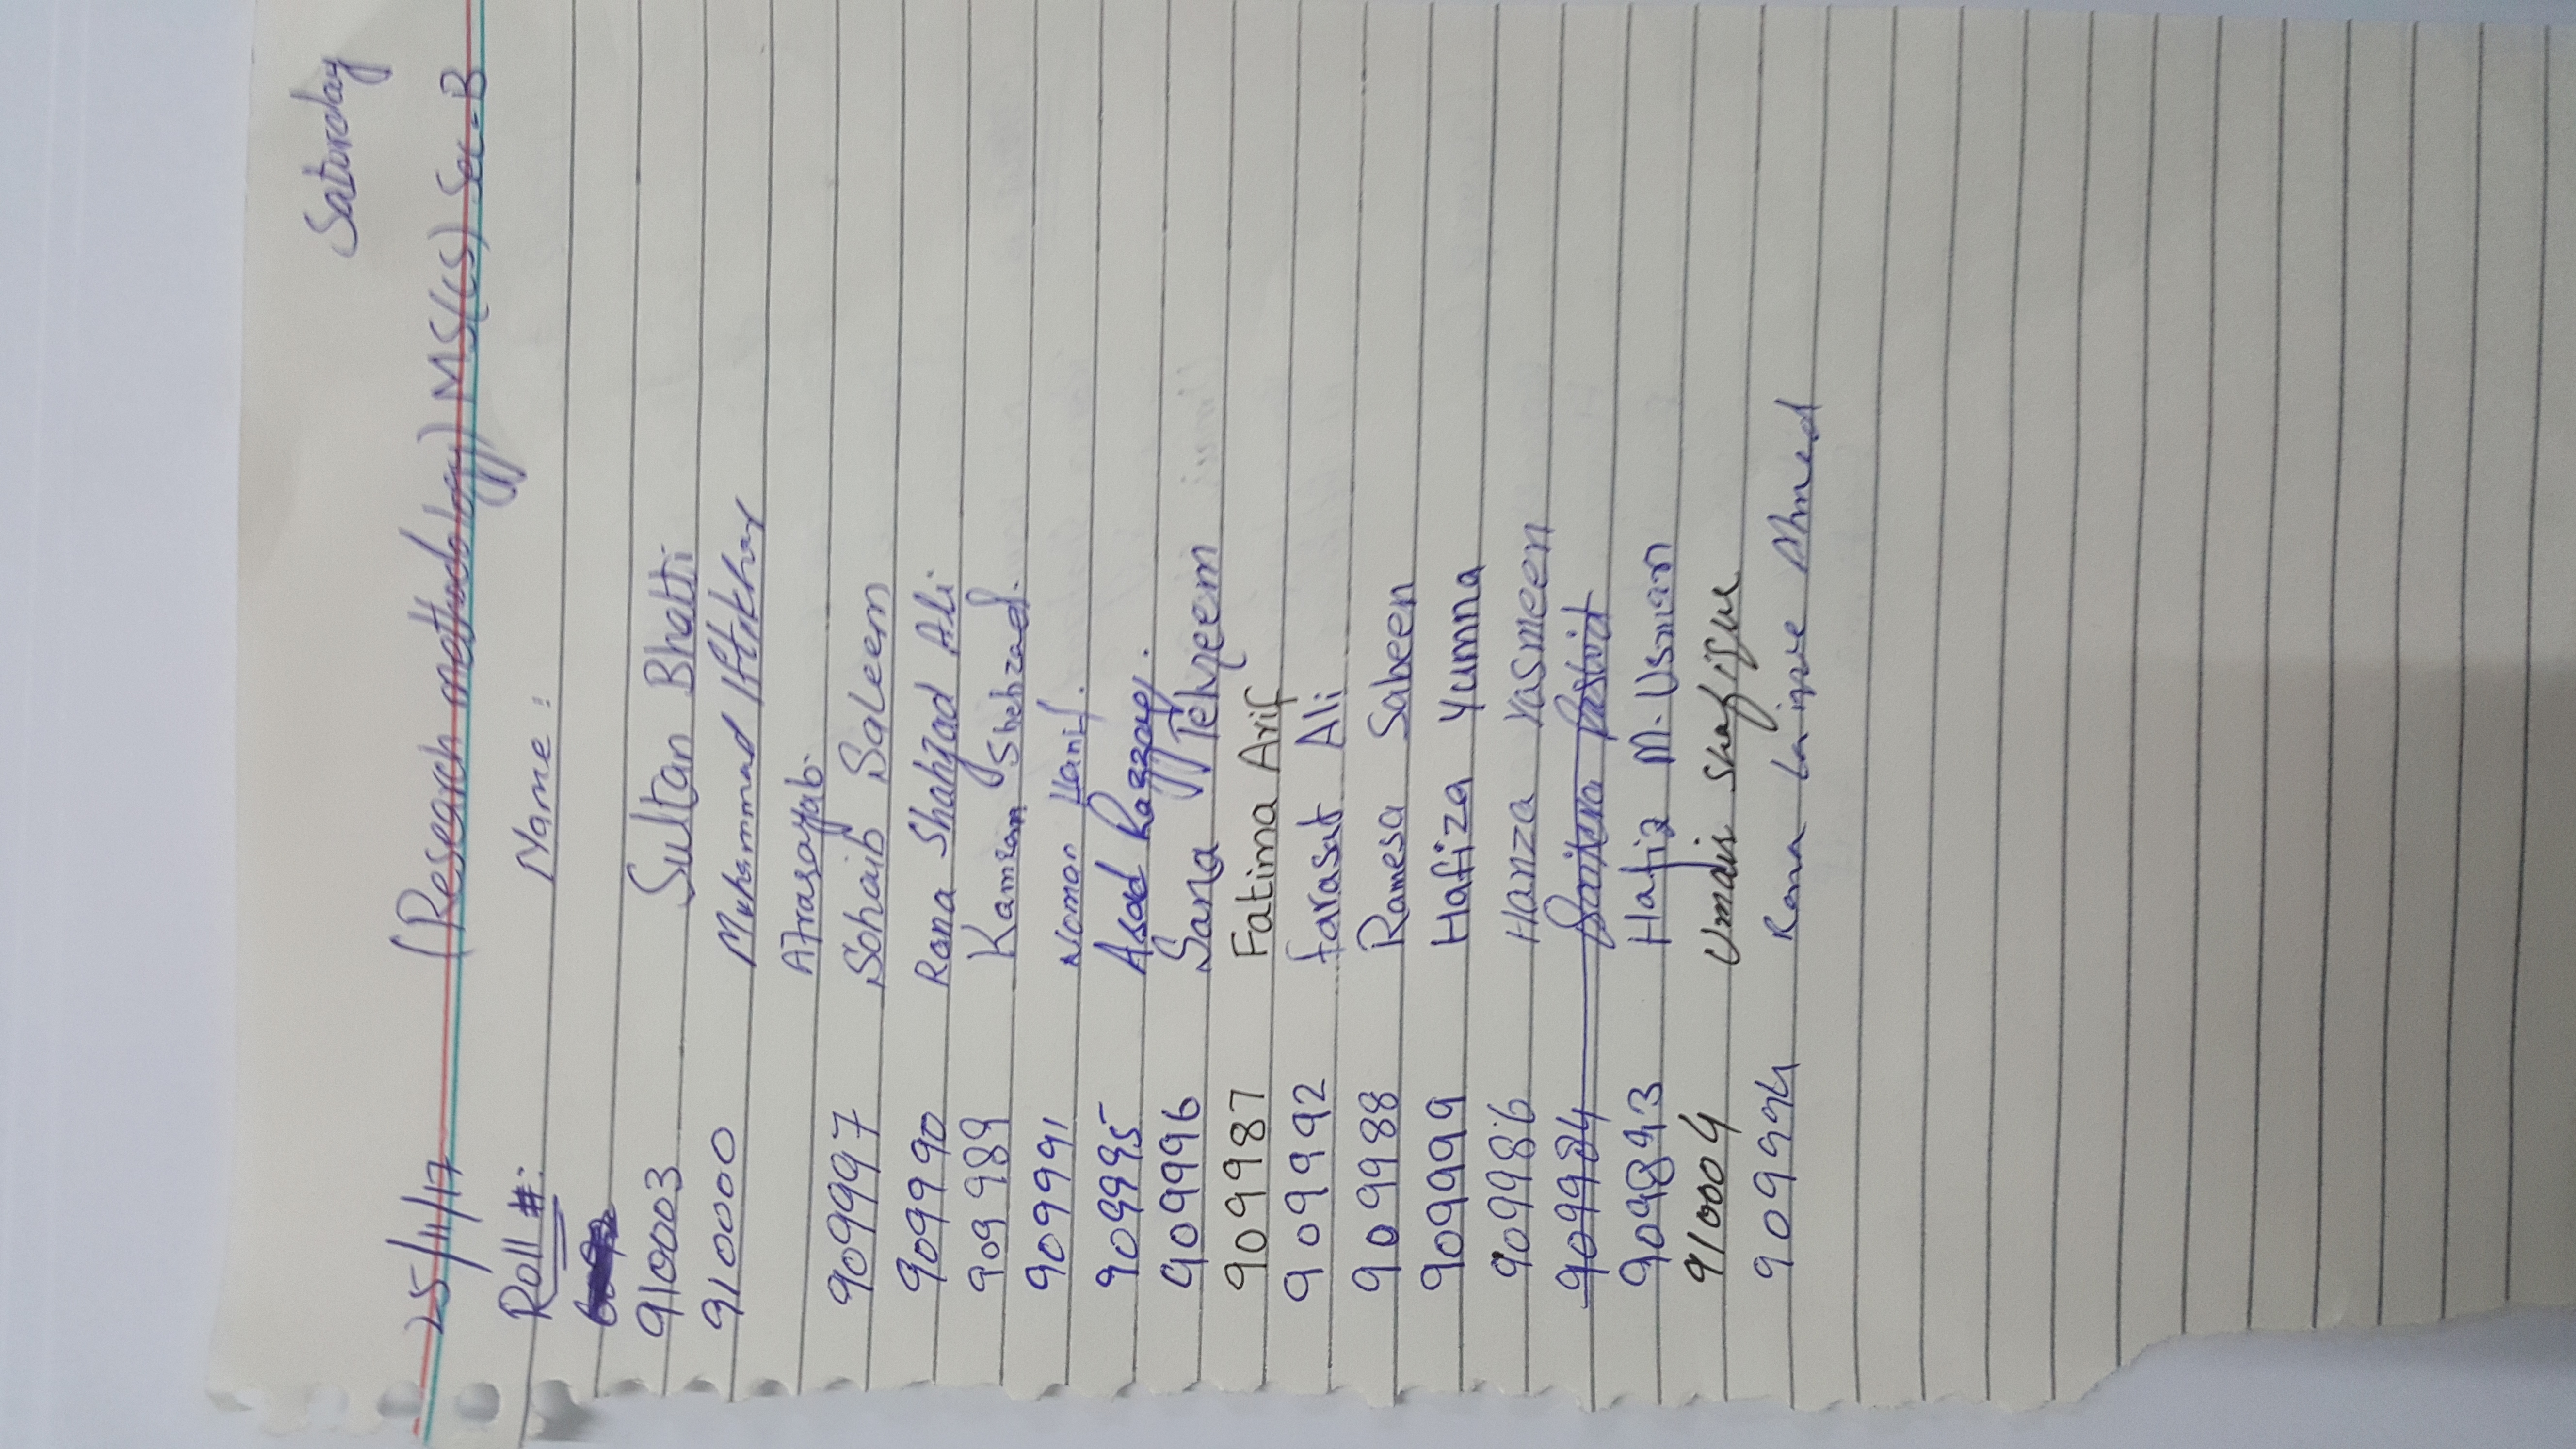 Saturday
25/11/17 (Research methodology) MS(CS) Sec-B
Roll #: Name :
910003 Sultan Bhatti
910000 Muhammad Iftikhar
Afrasayab.
909997 Sohaib Saleem
909990 Rana Shahzad Ali
909989 Kamran Shehzad.
909991 Noman Hanif.
909995 Asad Razzaq.
909996 Sana Tehzeem
909987 Fatima Arif
909992 farasat Ali
909988 Ramesa Sabeen
909999 Hafiza Yumna
909986 Hanza Yasmeen
909984
909893 Hafiz M. Usman
910004 Umair Shafique
909994 Rana Laique Ahmed